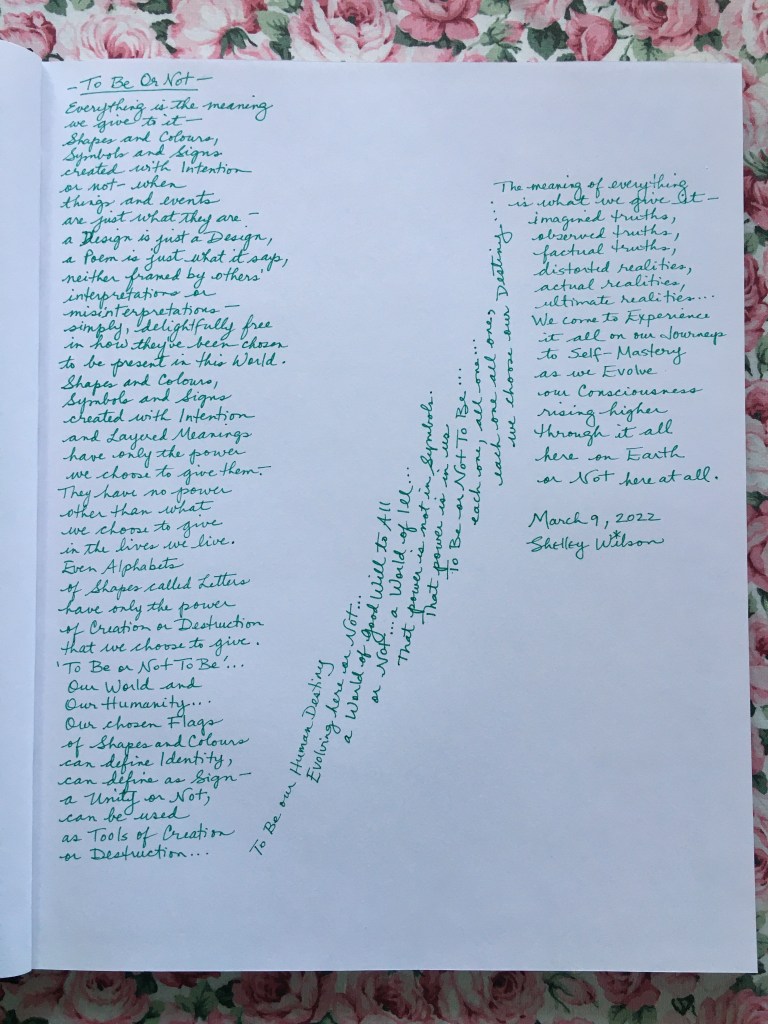 — To Be Or Not —
Everything is the meaning
we give to it —
Shapes and Colours,
Symbols and Signs
created with Intention
or not — when
things and events
are just what they are —
a Design is just a Design,
a Poem is just what it says,
neither framed by others'
interpretations or
misinterpretations —
simply, delightfully free
in how they've been chosen
to be present in this World.
Shapes and Colours,
Symbols and Signs
created with Intention
and Layered Meanings
have only the power
we choose to give them —
They have no power
other than what
we choose to give
in the lives we live.
Even Alphabets
of Shapes called Letters
have only the power
of Creation or Destruction
that we choose to give.
'To Be or Not To Be'...
Our World and
Our Humanity...
Our chosen Flags
of Shapes and Colours
can define Identity,
can define as Sign —
a Unity or Not,
can be used
as Tools of Creation
or Destruction...
To Be our Human Destiny
Evolving here or Not...
a World of Good Will to All
or Not... a World of Ill...
That power is not in Symbols.
That power is in us
To Be or Not To Be...
each one, all one...
each one all one,
we choose our Destiny...
The meaning of everything
is what we give it —
imagined truths,
observed truths,
factual truths,
distorted realities,
actual realities,
ultimate realities...
We come to Experience
it all on our Journeys
to Self-Mastery
as we Evolve
our Consciousness
rising higher
through it all
here on Earth
or Not here at all.
March 9, 2022
Shelley Wilson